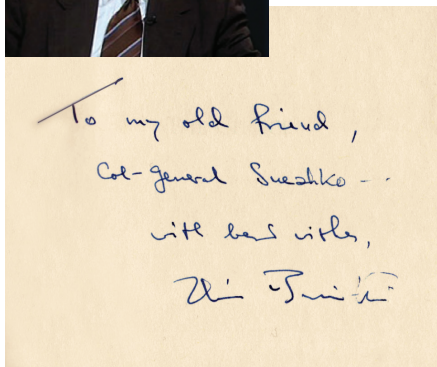 To my old friend,
Col-General Snezhko --
with best wishes,